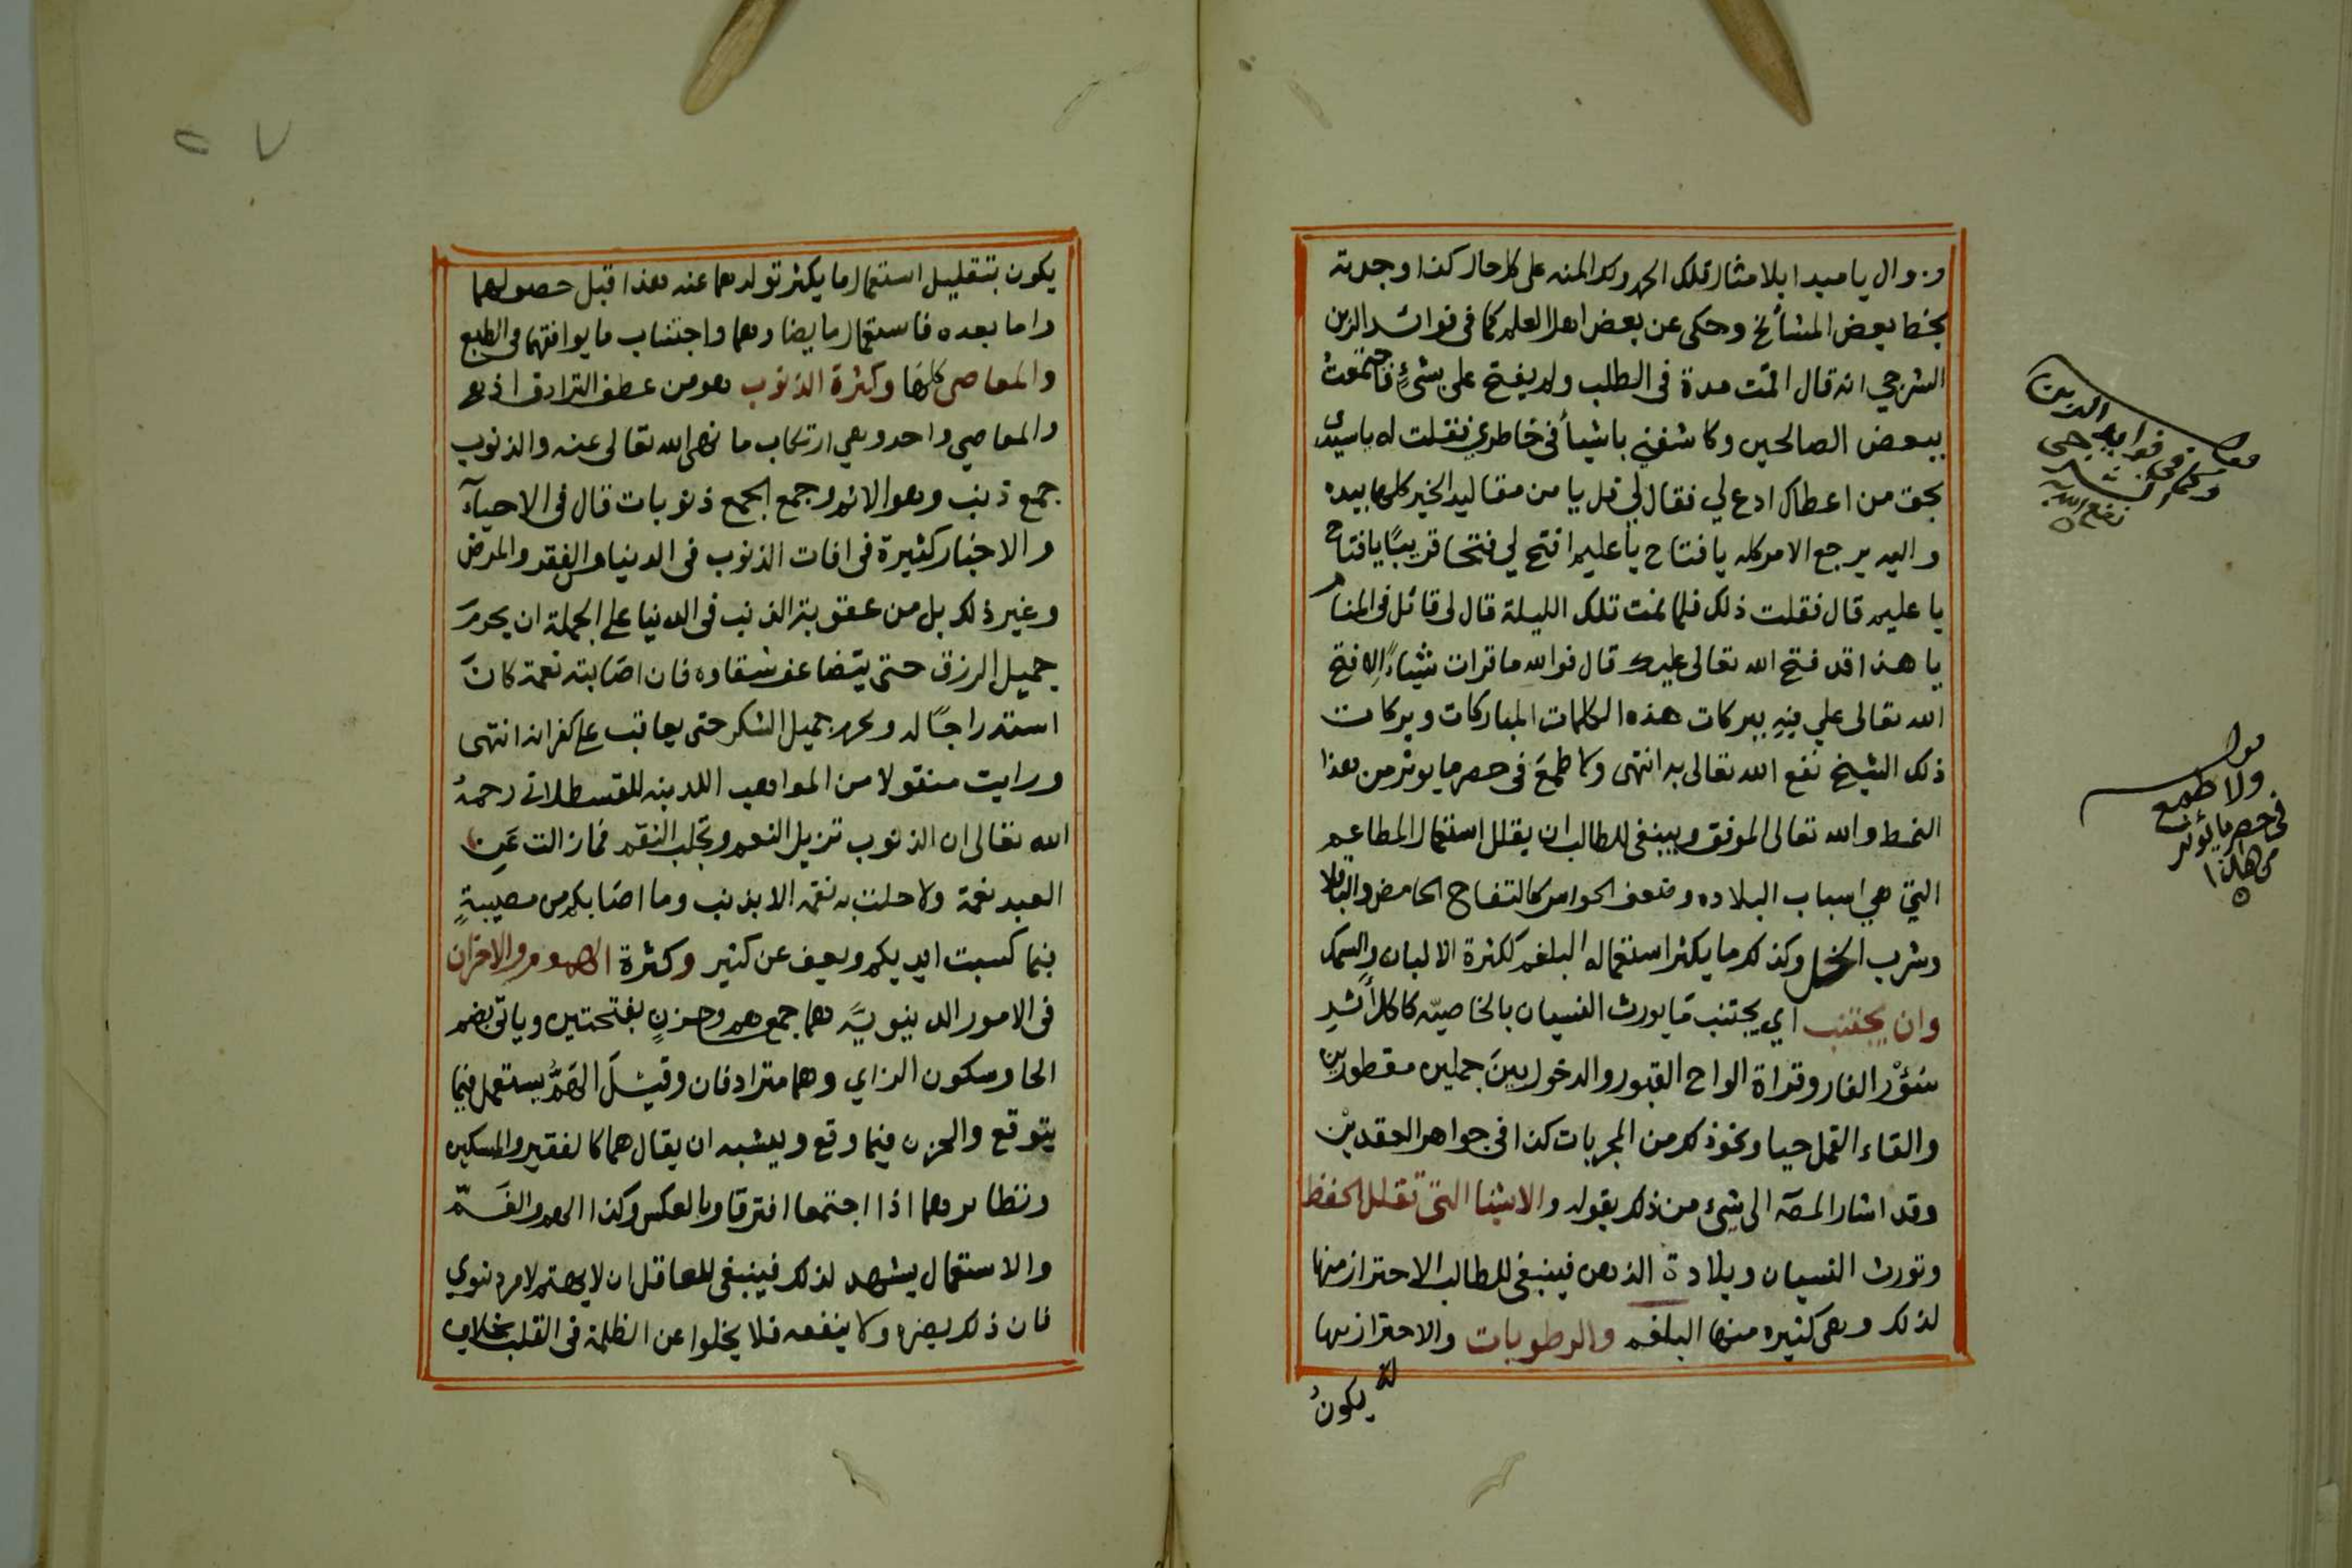 وزوال يا مبدا بلا مثال فلك الحمد ولك المنه على كل حال كذا وجدته
بخط بعض المشائخ وحكى عن بعض اهل العلم كما فى فوائد الزين
الشرجي انه قال اقمت مدة فى الطلب ولم يفتح على بشئ فاجتمعت
ببعض الصالحين وكاشفني باشيأ فى خاطري فقلت له ياسيدى
بحق من اعطاك ادع لي فقال لي قل يا من مقاليد الخير كلها بيده
واليه يرجع الامر كله يا فتاح يا عليم افتح لي فتحا قريبًا يا فتاح
يا عليم قال فقلت ذلك فلما نمت تلك الليلة قال لى قائل فى المنام
يا هذا قد فتح الله تعالى عليك قال فوالله ما قرات شيئاً الا فتح
الله تعالى علي فيه ببركات هذه الكلمات المباركات وبركات
ذلك الشيخ نفع الله تعالى به انتهى ولا طمع فى حصر ما يوثر من هذا
النمط والله تعالى الموفق وينبغى للطالب ان يقلل استعمال المطاعم
التي هي اسباب البلاده وضعف الحواس كالتفاح الحامض والباقلا
وشرب الخل وكذلك ما يكثر استعماله البلغم ككثرة الالبان والسمك
وان يجتنب اي يجتنب مَا يورث النسيان بالخاصيّه كاكل اشد
سُؤْر الفار وقراة الواح القبور والدخول بينَ جملين مقطورين
والقاء القمل حيا ونحو ذلك من المجربات كذا فى جواهر العقدين
وقد اشار المصَ الى شئ من ذلك بقوله والاشيا التى تقلل الحفظ
وتورث النسيان وبلادة الذهن فينبغى للطالب الاحتراز منها
لذلك وهى كثيره منها البلغم والرطوبات والاحتراز منها
يكونُ
قوله
وكما فى فوايد الزين
الشرجى
نفع الله به
قوله
ولا طمع
فى حصر ما يؤثر
من هذا
يكون بتقليل استعمال ما يكثر تولدهما عنه هذا قبل حصولهما
واما بعده فاستعمال ما يضادهما واجتناب ما يوافقهما فى الطبع
والمعاصى كلها وكثرة الذنوب هو من عطف الترادف اذ هى
والمعاصي واحد وهي ارتكاب ما نهى الله تعالى عنه والذنوب
جمع ذنب وهو الاثم وجمع الجمع ذنوبات قال فى الاحيآء
والاخبار كثيرة فى افات الذنوب فى الدنيا من الفقر والمرض
وغير ذلك بل من عقوبة الذنب فى الدنيا على الجملة ان يحرمَ
جميل الرزق حتى يتضاعف شقاوه فان اصَابته نعمة كانَ
استدراجًا له ويحرم جميل الشكر حتى يعاقب على كفرانه انتهى
ورايت منقولا من المواهب اللدنيه للقسطلاني رحمهُ
الله تعالى ان الذنوب تزيل النعم وتجلب النقم فما زالت عَنِ
العبد نعمة ولا حلت به نقمه الا بذنب وما اصَابكم من مصيبةٍ
فبما كسبت ايديكم ويعف عن كثير وكثرة الهموم والاحزان
فى الامور الدينويَّه هما جمع هم وحزنٍ بفتحتين وياتى بضم
الحا وسكون الزاي وهما مترادفان وقيْلَ الهَمُّ يستعمل فيما
يتوقع والحزن فيما وقع ويشبه ان يقال هما كالفقير والمسكين
ونظايرهما اذا اجتمعا افترقا وبالعكس وكذا الهم والغَمّ
والاستعمال يشهد لذلك فينبغى للعاقل ان لا يهتم لامر دنوي
فان ذلك يضره ولا ينفعه فلا يخلوا عن الظلمة فى القلب بخلاف